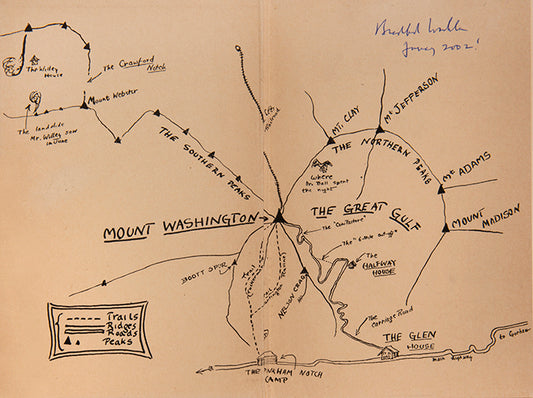 January 2002!
The Willey
House
The Crawford
Notch
The landslide
Mr. Willey saw
in June
Mount Webster
THE SOUTHERN PEAKS
Cog
Railroad
MT. CLAY
MT JEFFERSON
THE NORTHERN PEAKS
Where
Dr. Ball spent
the night
MT ADAMS
MOUNT
MADISON
MOUNT WASHINGTON
THE GREAT GULF
The "6-mile cut-off"
The
HALFWAY
HOUSE
BOOTT SPUR
NELSON CRAG
The Carriage Road
THE GLEN
HOUSE
to Gorham
main highway
THE PINKHAM NOTCH
CAMP
Trails
Ridges
Roads
Peaks